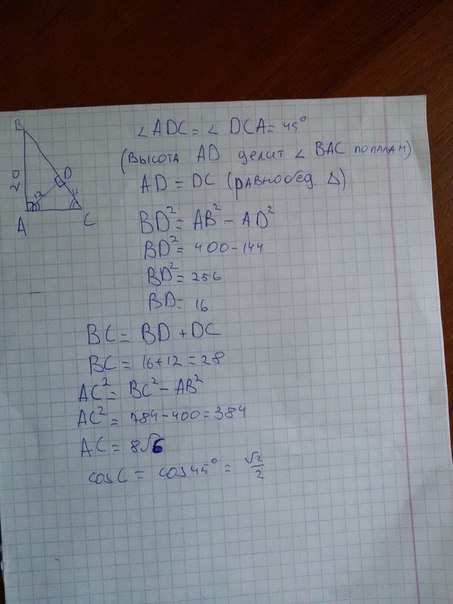 B
20
12
D
12
A
C
∠ADC = ∠DCA = 45°
(Высота AD делит ∠BAC пополам)
AD = DC (равнобед. Δ)
BD² = AB² - AD²
BD² = 400 - 144
BD² = 256
BD = 16
BC = BD + DC
BC = 16 + 12 = 28
AC² = BC² - AB²
AC² = 784 - 400 = 384
AC = 8√6
cosC = cos45° = √2/2